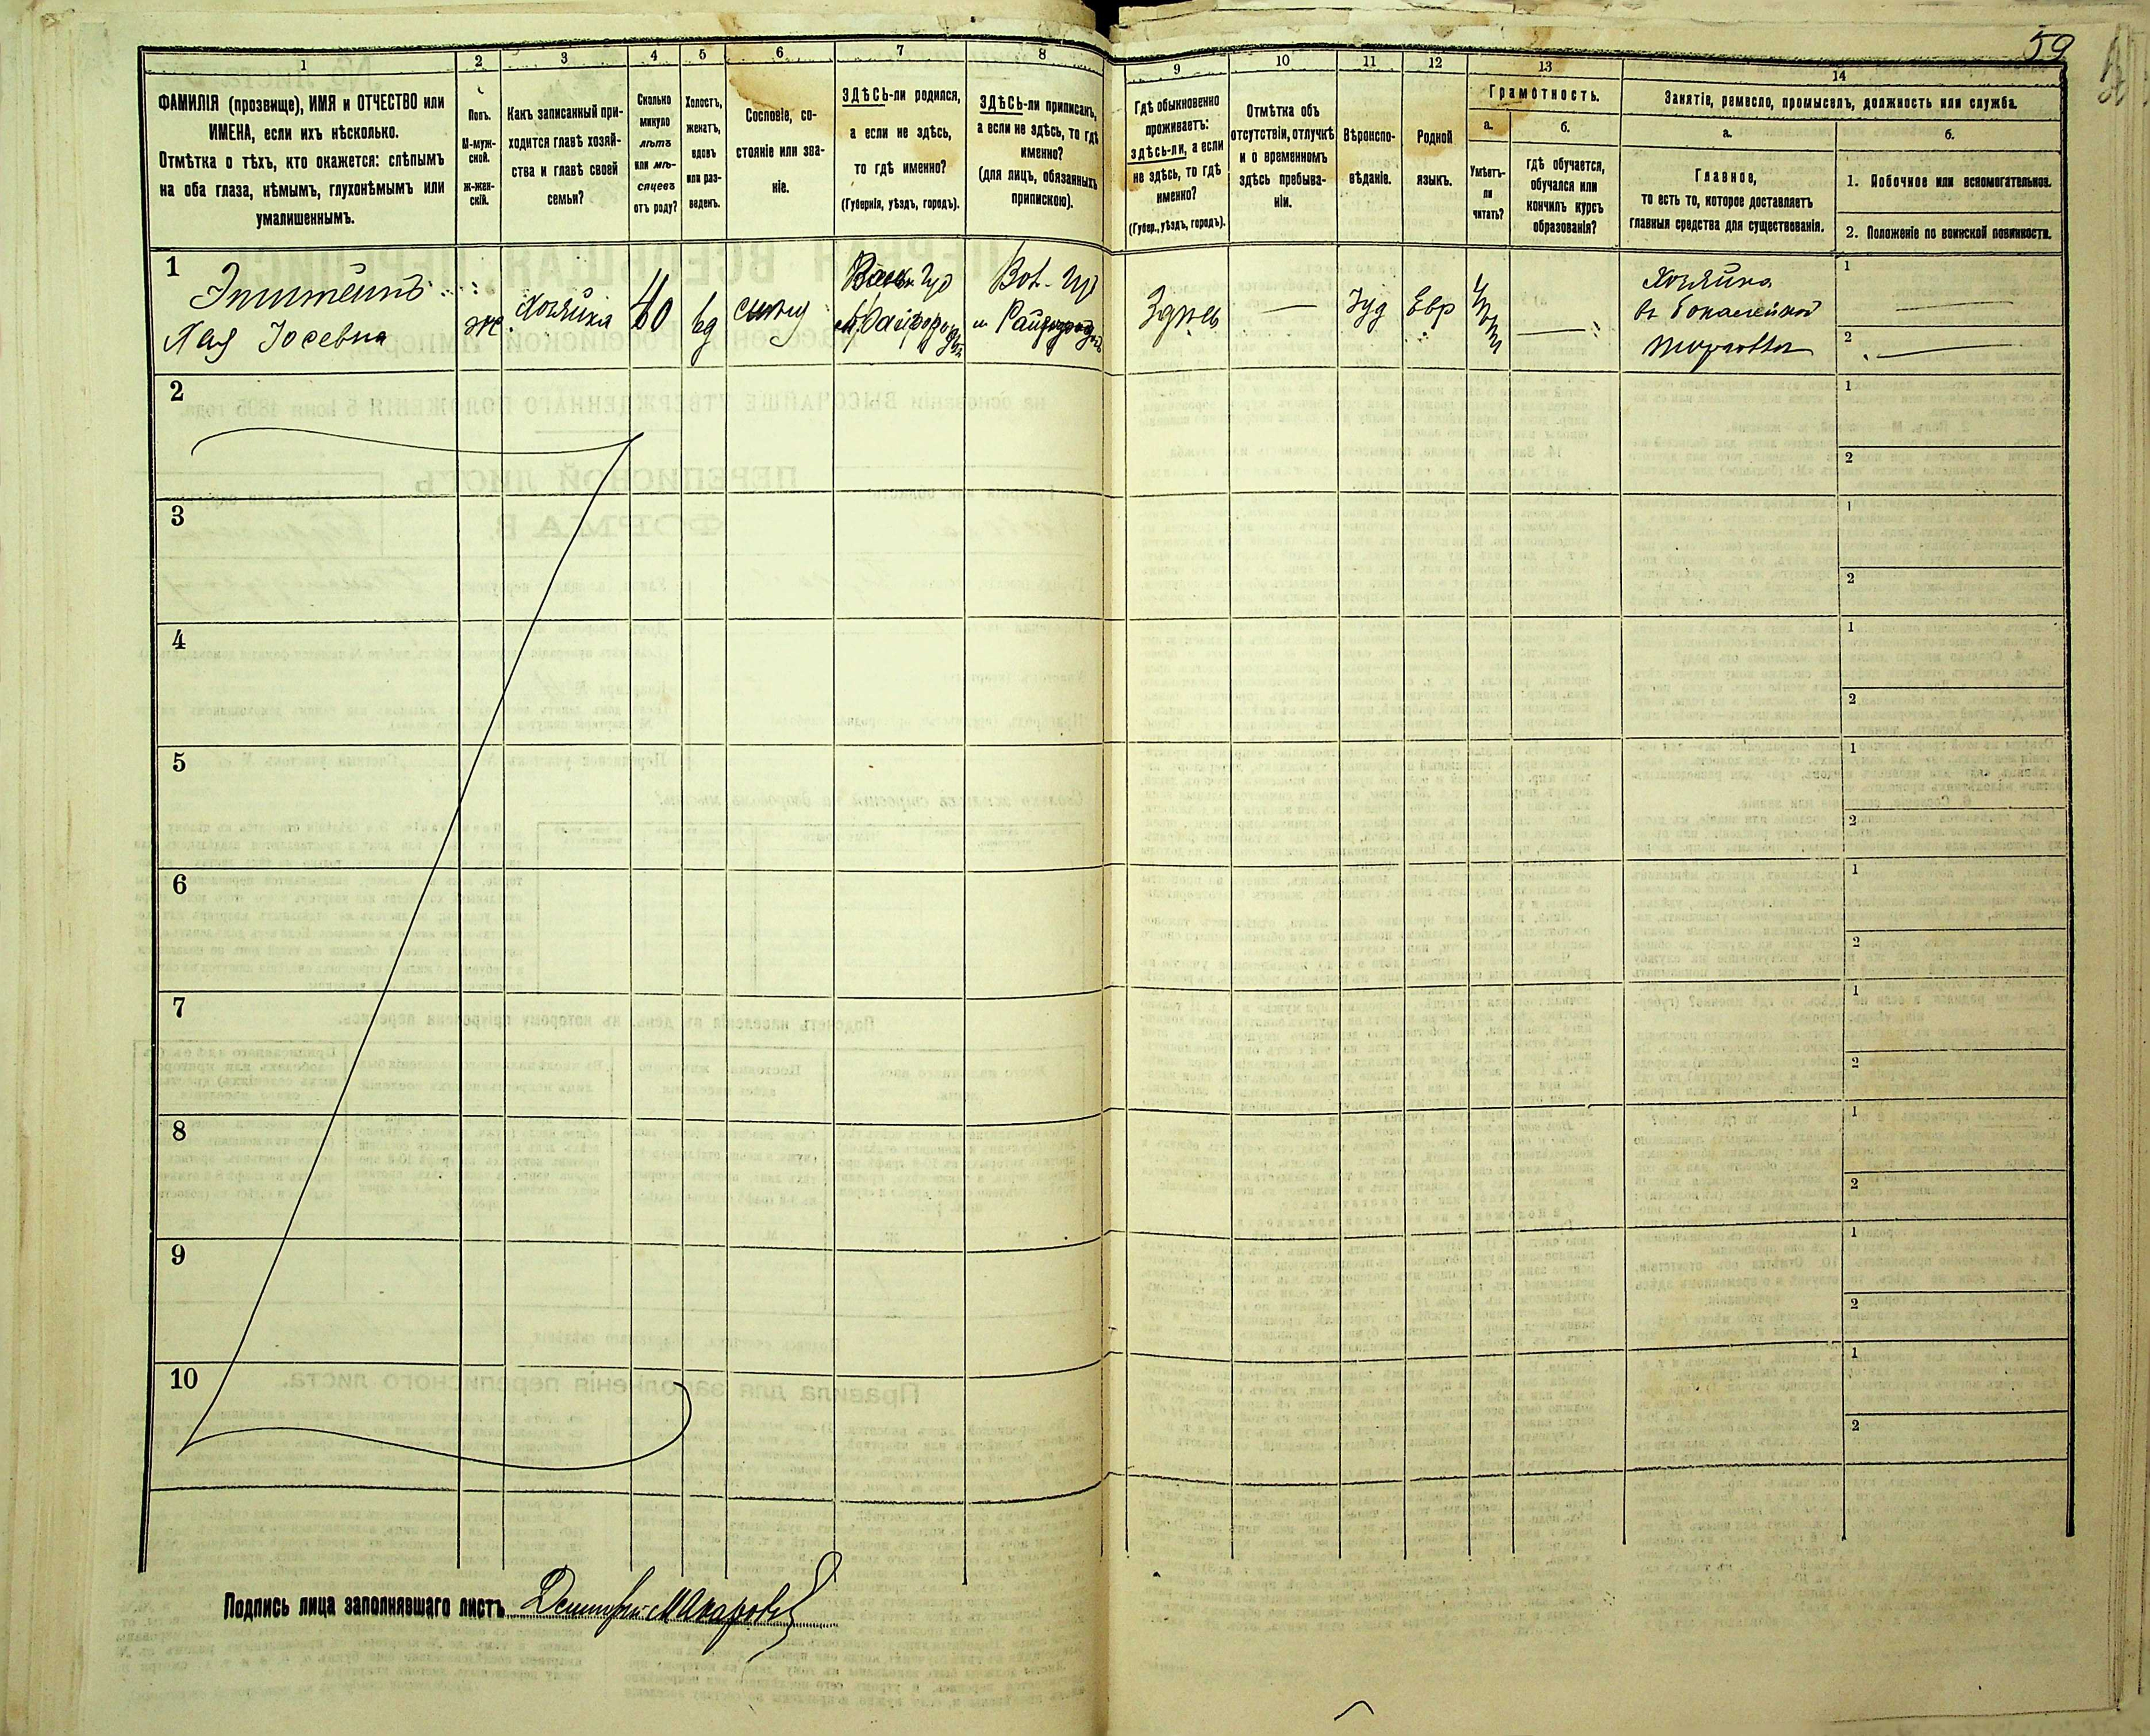 59
1
2
3
4
5
6
7
8
9
10
11
12
13
14
ФАМИЛІЯ (прозвище), ИМЯ и ОТЧЕСТВО или
ИМЕНА, если ихъ нѣсколько.
Отмѣтка о тѣхъ, кто окажется: слѣпымъ
на оба глаза, нѣмымъ, глухонѣмымъ или
умалишеннымъ.
Полъ.
М-муж-
ской.
ж-жен-
скій.
Какъ записанный при-
ходится главѣ хозяй-
ства и главѣ своей
семьи?
Сколько
минуло
лѣтъ
или мѣ-
сяцевъ
отъ роду?
Холостъ,
женатъ,
вдовъ
или раз-
веденъ.
Сословіе, со-
стояніе или зва-
ніе.
ЗДѢСЬ-ли родился,
а если не здѣсь,
то гдѣ именно?
(Губернія, уѣздъ, городъ).
ЗДѢСЬ-ли приписанъ,
а если не здѣсь, то гдѣ
именно?
(для лицъ, обязанныхъ
припискою).
Гдѣ обыкновенно
проживаетъ:
здѣсь-ли, а если
не здѣсь, то гдѣ
именно?
(Губер., уѣздъ, городъ).
Отмѣтка объ
отсутствіи, отлучкѣ
и о временномъ
здѣсь пребыва-
ніи.
Вѣроиспо-
вѣданіе.
Родной
языкъ.
Грамотность.
а.
Умѣетъ-
ли
читать?
б.
гдѣ обучается,
обучался или
кончилъ курсъ
образованія?
Занятіе, ремесло, промыселъ, должность или служба.
а.
Главное,
то есть то, которое доставляетъ
главныя средства для существованія.
б.
1. Побочное или вспомогательное.
2. Положеніе по воинской повинности.
1
Хая Іосевна
ж.
Хозяйка
40
вд
Вол. Гу
Здѣсь
—
Іуд
Евр
—
Хозяйка
въ бакалейной
торговли
1
2
2
1
2
3
1
2
4
1
2
5
1
2
6
1
2
7
1
2
8
1
2
9
1
2
10
1
2
Подпись лица заполнявшаго листъ